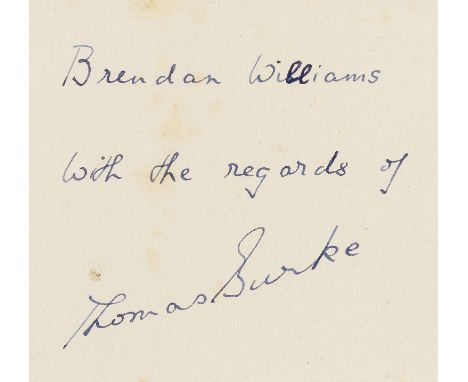 Brendan Williams
With the regards of
Thomas Burke